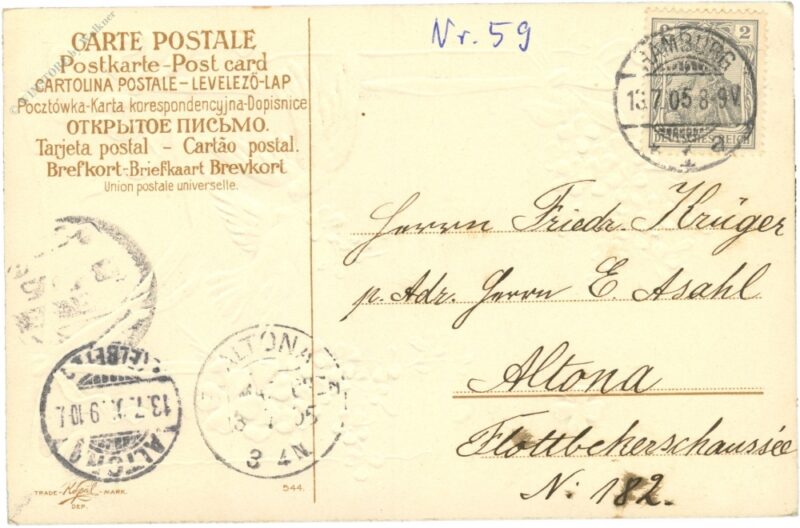 CARTE POSTALE
Postkarte-Post card
CARTOLINA POSTALE – LEVELEZŐ-LAP
Pocztówka-Karta korespondencyjna-Dopisnice
ОТКРЫТОЕ ПИСЬМО.
Tarjeta postal – Cartão postal.
Brefkort-Briefkaart Brevkort
Union postale universelle.
Nr. 59
2
DEUTSCHES REICH
HAMBURG
13.7.05.8-9V
* 1 a
Herrn Friedr. Krüger
p. Adr. Herrn E. Asahl
Altona
Flottbekerschaussée
N: 182.
ALTONA
3-4N
13.7.
9-10
ALTONA
TRADE- -MARK.
DEP.
544.